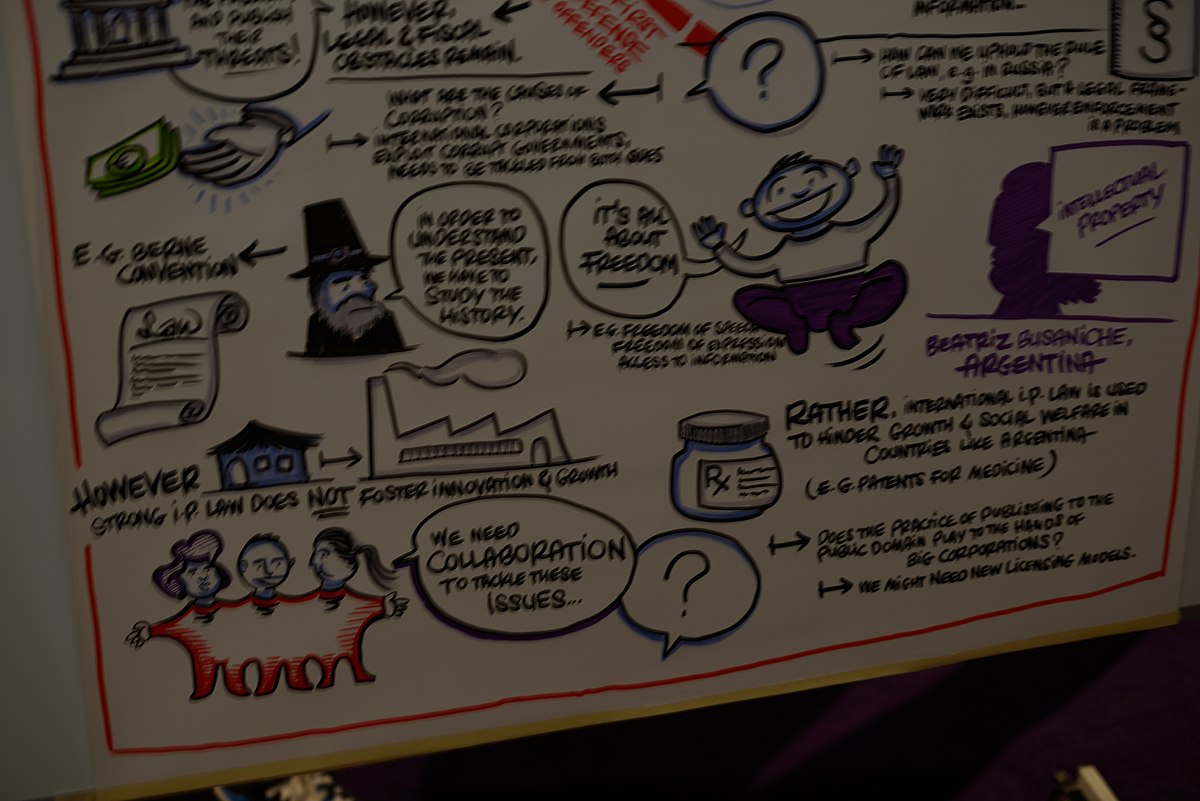 AND PUBLISH
THEIR
THREATS!
HOWEVER,
LEGAL & FISCAL
OBSTACLES REMAIN.
FIRST
DEFENSE
OFFENDERS
INFORMATION...
§
?
HOW CAN WE UPHOLD THE RULE
OF LAW, E.G. IN RUSSIA?
VERY DIFFICULT, BUT A LEGAL FRAME-
WORK EXISTS, HOWEVER ENFORCEMENT
IS A PROBLEM
WHAT ARE THE CAUSES OF
CORRUPTION?
INTERNATIONAL CORPORATIONS
EXPLOIT CORRUPT GOVERNMENTS,
NEEDS TO BE TACKLED FROM BOTH SIDES
€
E.G. BERNE
CONVENTION
Law
IN ORDER TO
UNDERSTAND
THE PRESENT,
WE HAVE TO
STUDY THE
HISTORY.
IT'S ALL
ABOUT
FREEDOM
E.G. FREEDOM OF SPEECH
FREEDOM OF EXPRESSION
ACCESS TO INFORMATION
INTELLECTUAL
PROPERTY
BEATRIZ BUSANICHE,
ARGENTINA
HOWEVER
STRONG I.P. LAW DOES NOT FOSTER INNOVATION & GROWTH
Rx
RATHER, INTERNATIONAL I.P. LAW IS USED
TO HINDER GROWTH & SOCIAL WELFARE IN
COUNTRIES LIKE ARGENTINA
(E.G. PATENTS FOR MEDICINE)
WE NEED
COLLABORATION
TO TACKLE THESE
ISSUES...
?
DOES THE PRACTICE OF PUBLISHING TO THE
PUBLIC DOMAIN PLAY TO THE HANDS OF
BIG CORPORATIONS?
WE MIGHT NEED NEW LICENSING MODELS.